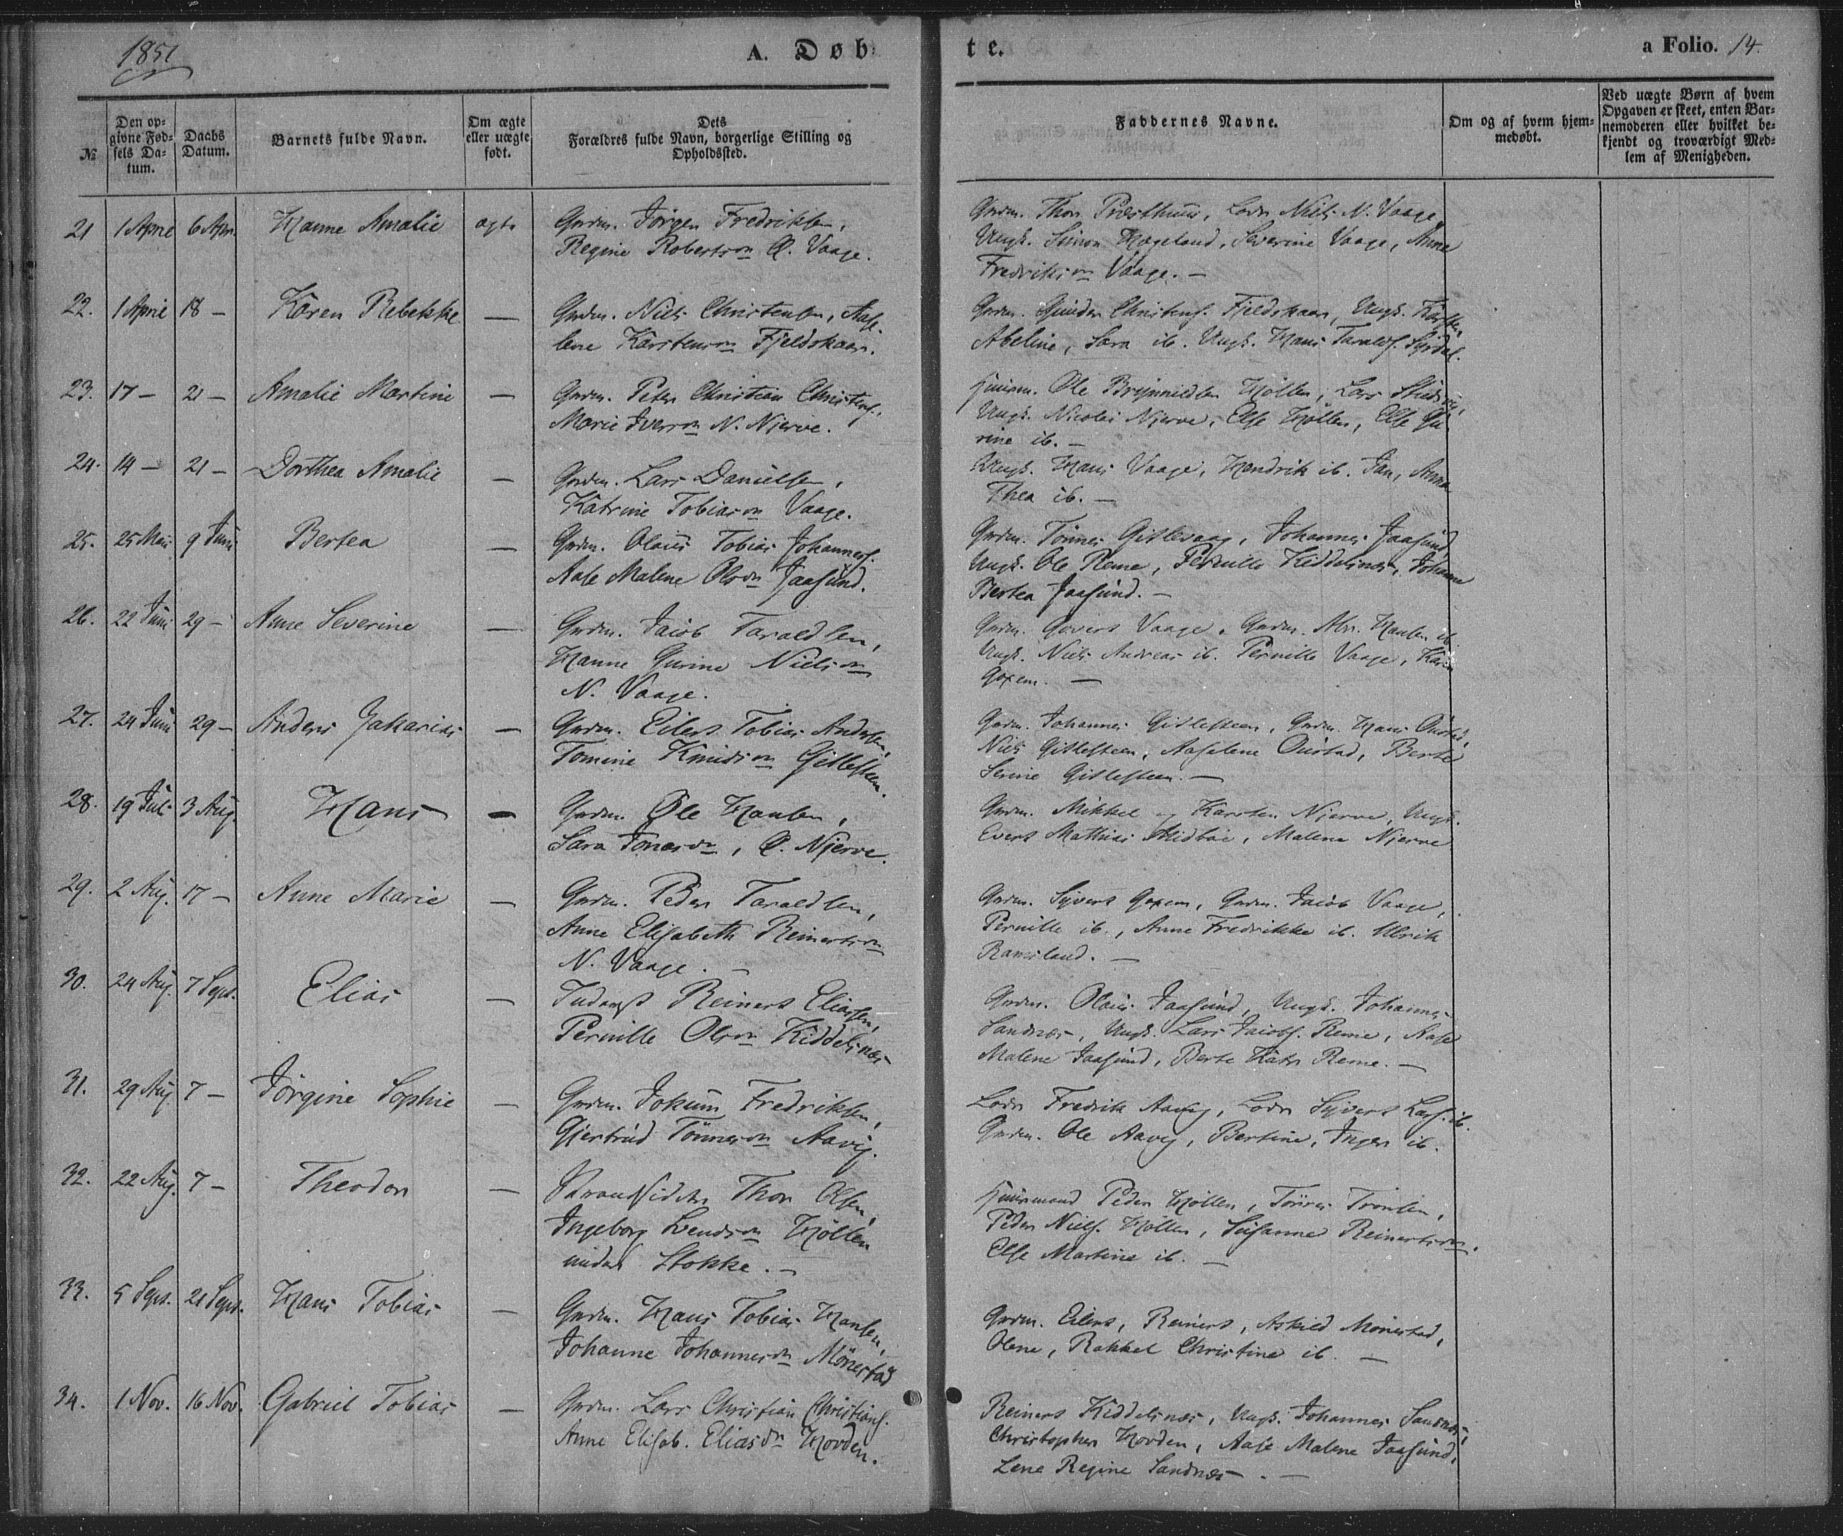 1851
A. Døbte.
a Folio. 14.
№
Den opgivne Fødsels Datum.
Daabs Datum.
Barnets fulde Navn.
Om ægte eller uægte født.
Dets Forældres fulde Navn, borgerlige Stilling og Opholdssted.
Faddernes Navne.
Om og af hvem hjemmedøbt.
Ved uægte Børn af hvem Opgaven er skeet, enten Barnemoderen eller hvilket bekjendt og troværdigt Medlem af Menigheden.
21 1 April 6 Apr. Hanne Amalie ægte
Grdm. Jörgen Fredriksen,
Regine Robertsdn Ø. Vaage.
Grdm. Thor Præsthuus, Lods Niels N. Vaage,
Ungk. Simon Hægeland, Severine Vaage, Anne
Fredriksdn Vaage. —
22. 1 April 18 — Karen Rebekke —
Grdm. Niels Christensen, Aase-
lene Karstensdn Fjeldskaar.
Grdm. Gunder Christens. Fjeldskaar, Ungk. Karsten,
Abeline, Sara ib. Ungk. Hans Taralds. Syrdal.
23. 17 — 21 — Amalie Martine —
Grdm. Peter Christian Christens.
Marie Iversdn N. Njerve.
Huusm. Ole Brynnildsen Höllen, Lars
Ungk. Nicolai Njerve, Else Hölle, Else Gu-
rine ib. —
24. 14 — 21 — Dorthea Amalie —
Grdm. Lars Danielsen,
Katrine Tobiasdn Vaage.
Ungk. Hans Vaage, Hendrik ib. Jan, Anna
Thea ib. —
25. 25 Mai 9 Juni Bertea —
Grdm. Olaus Tobias Johannes.
Aase Malene Olsdn Jaasund.
Grdm. Tönnes Gislevaag, Johannes Jaasund,
Ungk. Ole Reme, Pernille Kiddelsnæs, Johanne
Bertea Jaasund. —
26. 22 Juni 29 — Anne Severine —
Grdm. Jacob Taraldsen,
Hanne Gurine Nielsdn
N. Vaage.
Grdm. Govert Vaage, Grdm. Abr. Hansen ib.
Ungk. Niels Andreas ib. Pernille Vaage, Karen
Goxem. —
27. 24 Juni 29 — Anders Zakarias —
Grdm. Eilert Tobias Anders.,
Tomine Knudsdn Gislesteen.
Grdm. Johannes Gislesteen, Grdm. Hans Öiestad,
Niels Gislesteen, Aaselene Öiestad, Berte
Serine Gislesteen. —
28. 19 Jul. 3 Aug. Hans —
Grdm. Ole Hansen,
Sara Jonasdn, Ø. Njerve.
Grdm. Mikkel og Karsten Njerve, Ungk.
Evert Mathias Midbøe, Malene Njerve
29. 2 Aug. 17 — Anne Marie —
Grdm. Peder Taraldsen,
Anne Elisabeth Reinertsdn
N. Vaage. —
Grdm. Syvert Goxem, Grdm. Jacob Vaage,
Pernille ib., Anne Fredrikke ib. Ulrik
Ramsland. —
30. 24 Aug. 7 Sept. Elias —
Inderst Reinert Eliassen,
Pernille Olsdn Kiddelsnæs
Grdm. Olaus Jaasund, Ungk. Johannes
Sandnæs, Ungk. Lars Jacobs. Reme, Aase
Malene Jaasund, Berte Katr. Reme. —
31. 29 Aug. 7 — Jörgine Sophie —
Grdm. Jokum Fredriksen,
Giertrud Tönnesdn Aavig.
Lods Fredrik Aavig, Lods Syvert Lars. ib.
Grdm. Ole Aavig, Bertine, Inger ib.
32. 22 Aug. 7 — Theodor —
Strandsidder Thor Olsen,
Ingeborg Bendsdn Hölle
under Stokke. —
Huusmand Peder Hölle, Törres Tronsen,
Peder Niels. Hölle, Susanne Reinertsdn.
Else Martine ib. —
33. 5 Sept. 21 Sept. Hans Tobias —
Grdm. Hans Tobias Hansen,
Johanne Johannesdn Mönestad
Grdm. Eilert, Reinert, Askild Mönestad,
Olene, Rakkel Christine ib. —
34. 1 Nov. 16 Nov. Gabriel Tobias —
Grdm. Lars Christian Christians.
Anne Elisab. Eliasdn Hovden.
Reinert Kiddelsnæs, Ungk. Johannes Sandnæs,
Christopher Hovden, Aase Malene Jaasund,
Lene Regine Sandnæs. —